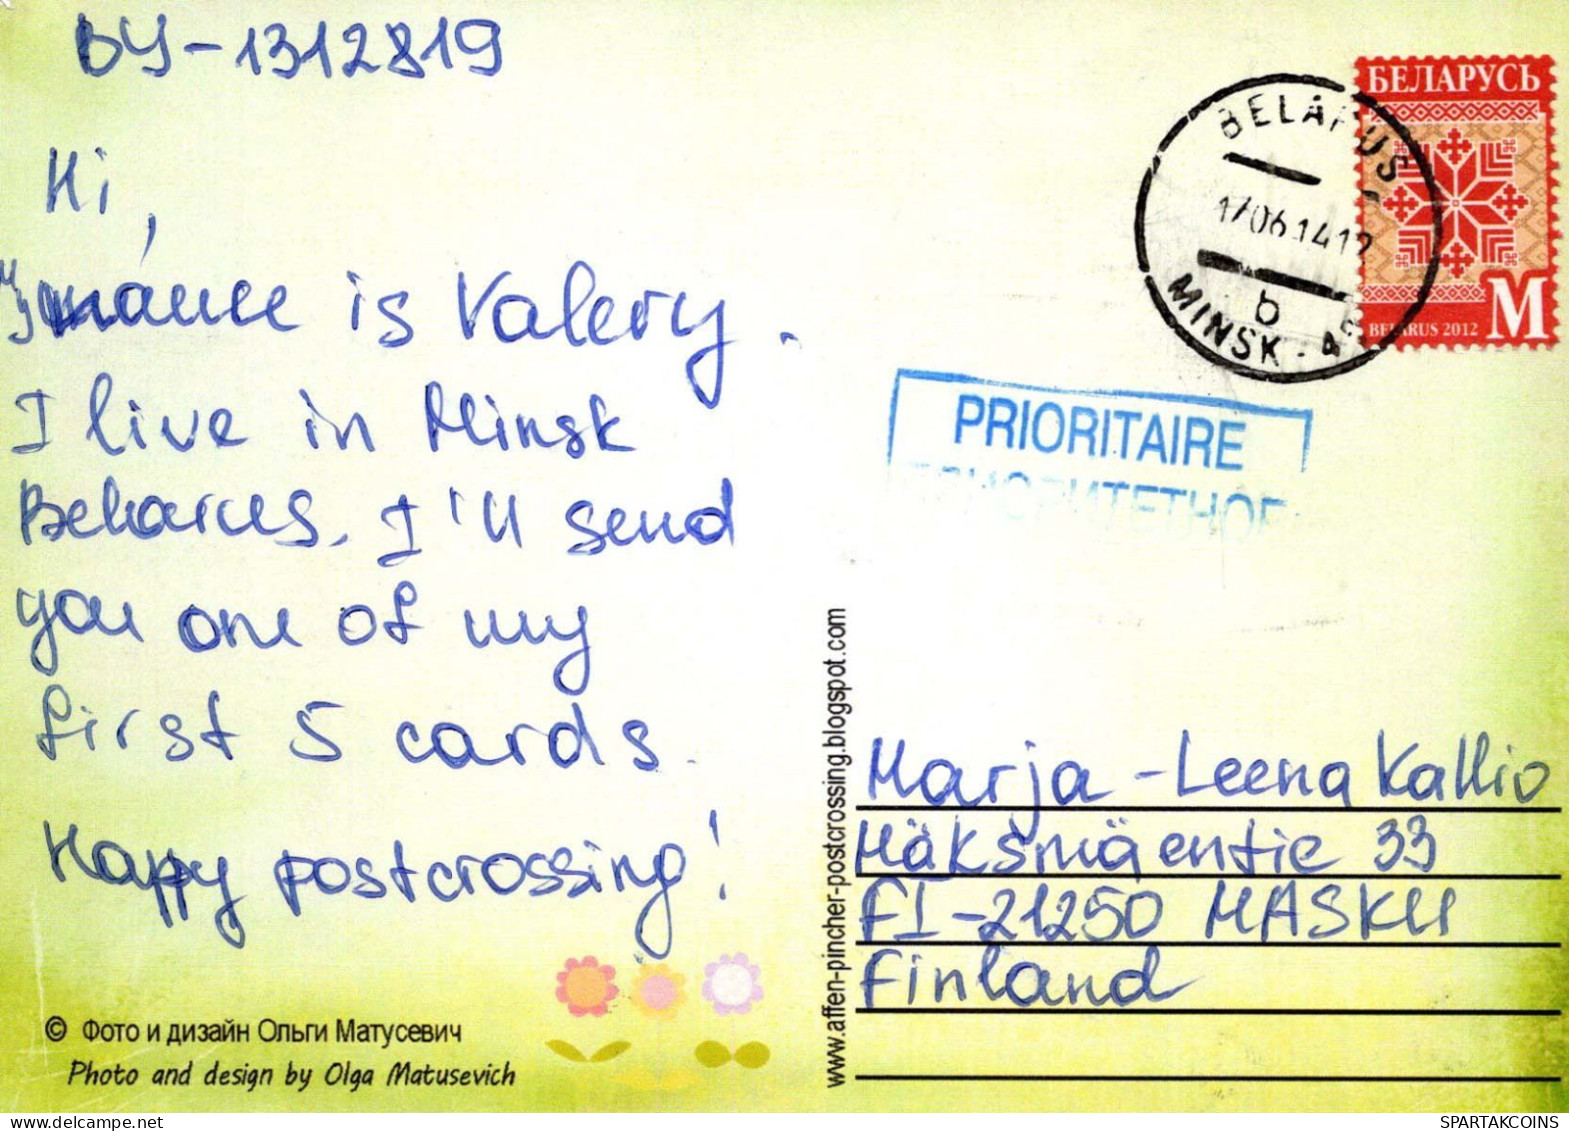 BY-1312819
Hi,
My name is Valery.
I live in Minsk
Belarus. I'll send
you one of my
first 5 cards.
Happy postcrossing!
© Фото и дизайн Ольги Матусевич
Photo and design by Olga Matusevich
www.affen-pincher-postcrossing.blogspot.com
БЕЛАРУСЬ
BELARUS 2012 M
BELARUS
17 06 14 12
b
MINSK - 
PRIORITAIRE
ПРИОРИТЕТНОЕ
Marja-Leena Kallio
Mäksmäentie 33
FI-21250 MASKU
Finland
SPARTAKCOINS